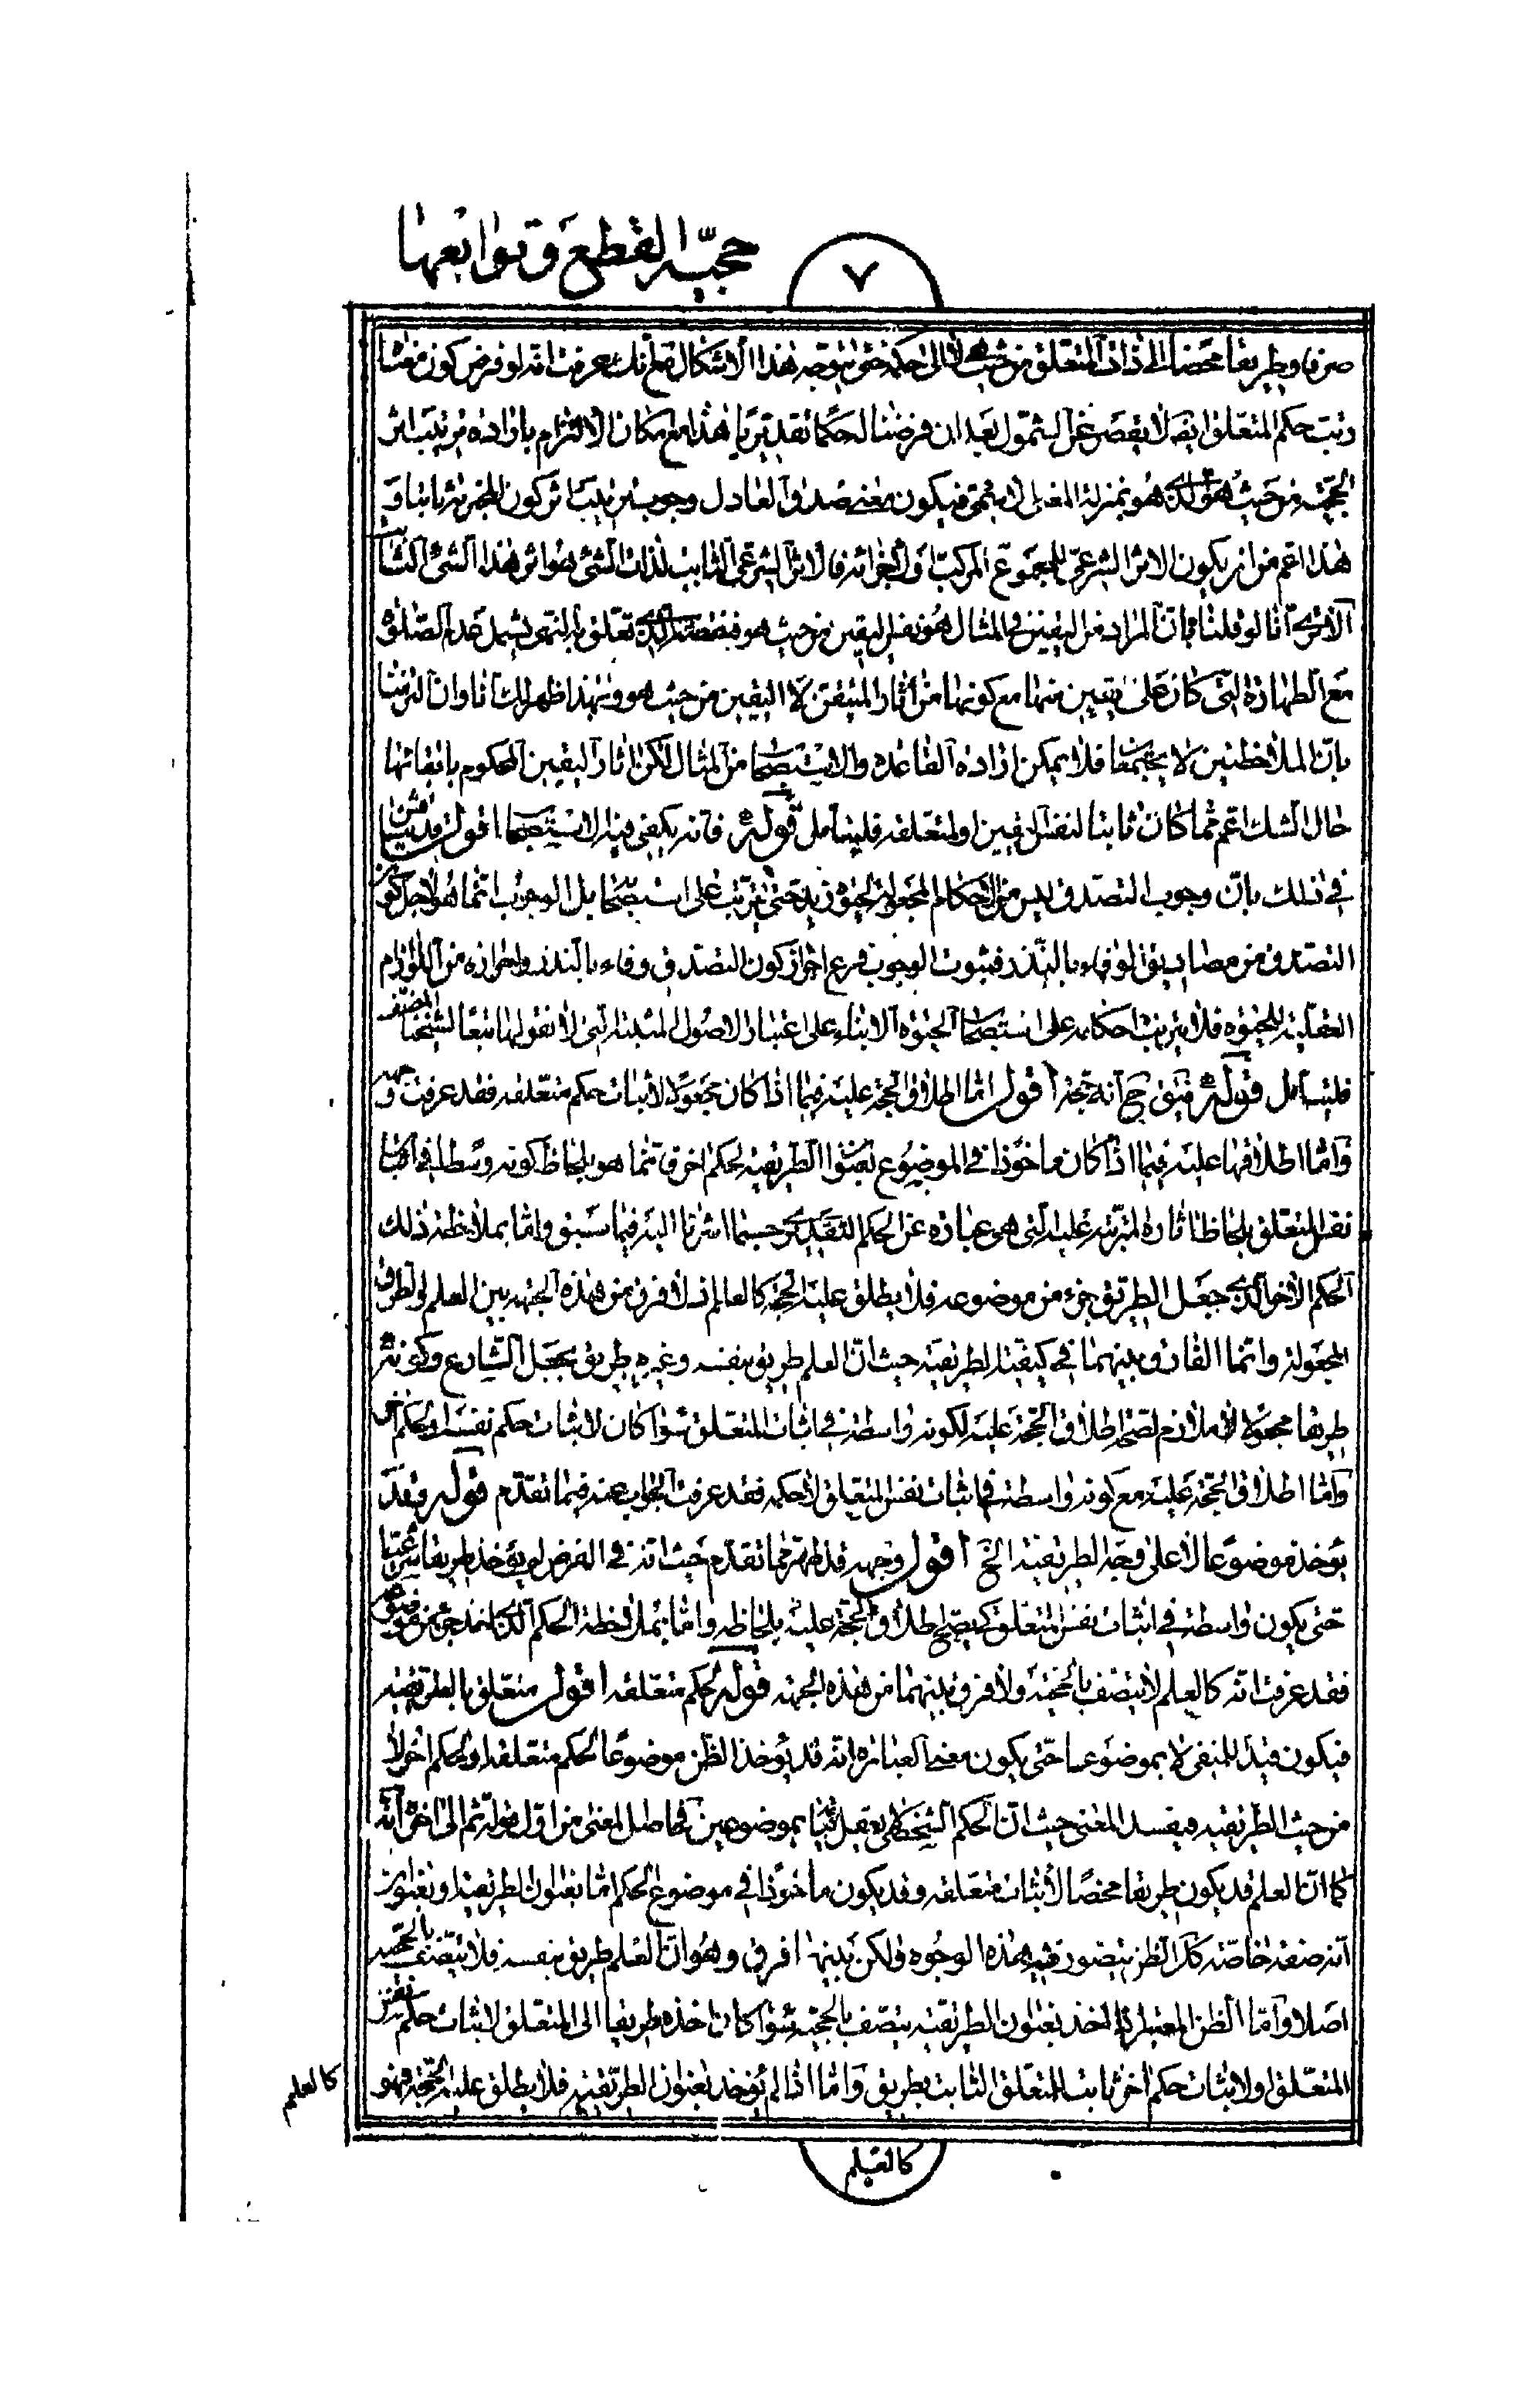 حجیّة القطع و توابعها
٧
صرفا و طریقا محضا الی ذات المتعلق من حیث هی لا الی حکمه حتی یتوجه هذا الاشکال مع انک عرفت انه لو فرض کون منشا
حکم المتعلق لا یقصر عن الشمول بعد ان فرضنا لحکما تقدیریا هذا مع امکان الالتزام بارادة ترتیب اثر
من حیث هو الذی هو بمنزلة المعنی الاعمی فیکون معنی صدق العادل وجوب ترتیب اثر کون المخبر به ثابتا و
هذا اعم من ان یکون الاثر الشرعی للمجموع المرکب او لاجزائه فالاثر الشرعی الثابت لذات الشیء هو اثر هذا الشیء الثابت
انا لو قلنا بان المراد من الیقین فی المثال هو نفس الیقین من حیث هو فنقضه الذی تعلق به النهی یشمل عدم الصلوة
مع الطهارة التی کان علی یقین منها مع کونها من اثار المتیقن لا الیقین من حیث هو و بهذا ظهر لک انا و ان التزمنا
بان الملاحظتین لا یجتمعا فلا یمکن ارادة القاعدة و الاستصحاب من المثال لکن اثار الیقین المحکوم بابقائها
حال الشک اعم مما کان ثابتا لنفس الیقین او لمتعلقه فلیتامل قوله فانه یکفی فیه الاستصحاب اقول قد یناقش
فی ذلک بان وجوب التصدق لیس من الاحکام المجعولة لحیوة زید حتی یترتب علی استصحابها بل الوجوب انما هو لاجل کون
التصدق من مصادیق الوفاء بالنذر فثبوت الوجوب فرع احراز کون التصدق وفاء بالنذر و احرازه من اللوازم
العقلیة للحیوة فلا یترتب احکامه علی استصحاب الحیوة الا بناء علی اعتبار الاصول المثبتة التی لا نقول بها تبعا لشیخنا المصنف
فلیتامل قوله فیقال ح انه حجة اقول اما اطلاق الحجة علیه فیما اذا کان مجعولا لاثبات حکم متعلقه فقد عرفت وجهه
و اما اطلاقها علیه فیما اذا کان ماخوذا فی الموضوع بعنوان الطریقیة لحکم اخر فانما هو بلحاظ کونه وسطا فی اثبات
نفس المتعلق بلحاظ اثاره المترتبة علیه التی هی عبارة عن الحکم التقدیری حسبما اشرنا الیه فیما سبق و اما بملاحظة ذلک
الحکم الاخر الذی جعل الطریق جزء من موضوعه فلا یطلق علیه الحجة کالعلم اذ لا فرق من هذه الجهة بین العلم و الطرق
المجعولة و انما الفارق بینهما فی کیفیة الطریقیة حیث ان العلم طریق بنفسه و غیره طریق بجعل الشارع و کونه
طریقا مجعولا ملازم لصحة اطلاق الحجة علیه لکونه واسطة فی اثبات المتعلق سواء کان لاثبات حکم نفسه او لحکم اخر
و اما اطلاق الحجة علیه مع کونه واسطة فی اثبات نفس المتعلق لا حکمه فقد عرفت الجواب عنه فیما تقدم قوله و قد
یؤخذ موضوعا لا علی وجه الطریقیة الخ اقول وجهه قد ظهر مما تقدم حیث انه فی الفرض لم یؤخذ طریقا شرعیا
حتی یکون واسطة فی اثبات نفس المتعلق کی یصح اطلاق الحجة علیه بلحاظه و اما بملاحظة الحکم الذی اخذ جزء من موضوعه
فقد عرفت انه کالعلم لا یتصف بالحجیة و لا فرق بینهما من هذه الجهة قوله لحکم متعلقه اقول متعلق بالطریقیة
فیکون قیدا للمنفی لا بموضوعا حتی یکون معنی العبارة انه قد یؤخذ الظن موضوعا لحکم متعلقه او لحکم اخر لا
من حیث الطریقیة فیفسد المعنی حیث ان الحکم الشخصی لا یعقل بموضوعین فحاصل المعنی من اول قوله ثم الی اخره انه
کما ان العلم قد یکون طریقا محضا لاثبات متعلقه و قد یکون ماخوذا فی موضوع الحکم اما بعنوان الطریقیة او بعنوان
انه صفة خاصة کذا الظن یتصور فیه هذه الوجوه و لکن بینها فرق و هو ان العلم طریق بنفسه فلا یتصف بالحجیة
اصلا و اما الظن المعتبر اذا اخذ بعنوان الطریقیة یتصف بالحجیة سواء کان اخذه طریقا الی المتعلق لاثبات حکم نفس
المتعلق او لاثبات حکم اخر ثابت للمتعلق الثابت بطریق و اما اذا لم یؤخذ بعنوان الطریقیة فلا یطلق علیه الحجة فهو
کالعلم
کالعلم